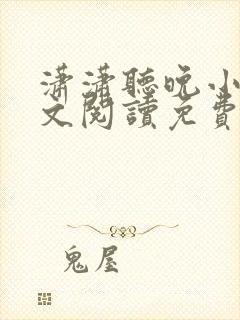 潇潇聽晚小
文閱讀免費
鬼屋